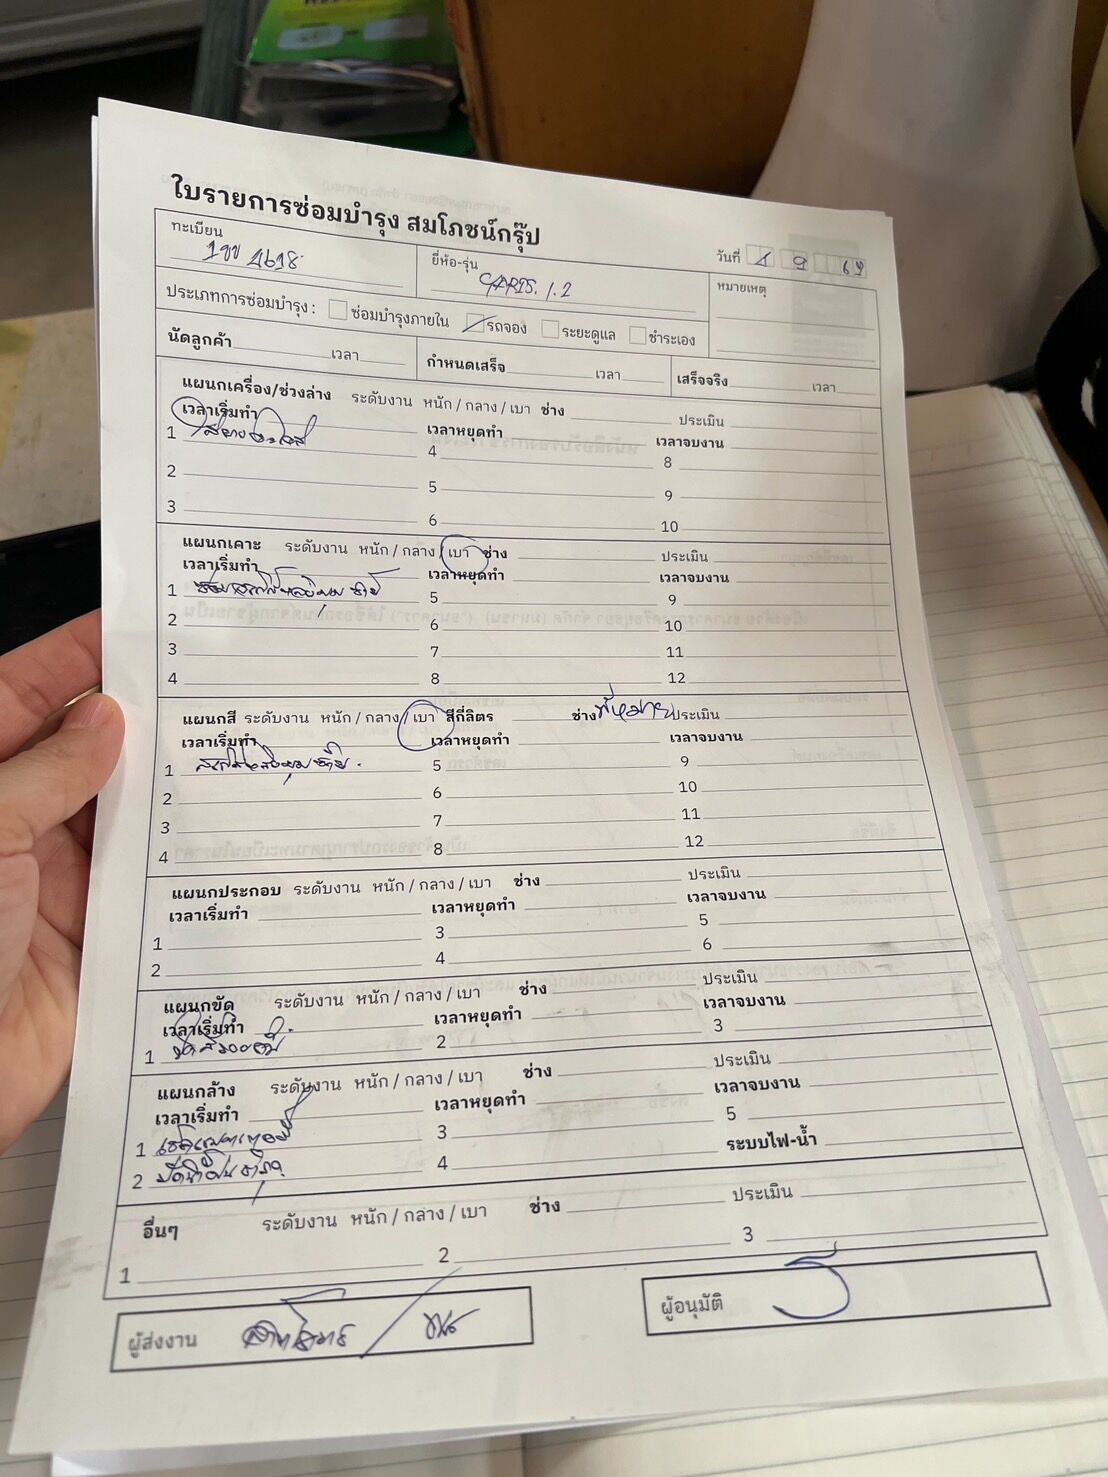 ใบรายการซ่อมบำรุง สมโภชน์กรุ๊ป
วันที่ 4 9 69
ทะเบียน 1ขข 4618
ยี่ห้อ-รุ่น YARIS. 1.2
หมายเหตุ
ประเภทการซ่อมบำรุง : ซ่อมบำรุงภายใน รถจอง ระยะดูแล ชำระเอง
นัดลูกค้า เวลา กำหนดเสร็จ เวลา เสร็จจริง เวลา
แผนกเครื่อง/ช่วงล่าง ระดับงาน หนัก / กลาง / เบา ช่าง ประเมิน
เวลาเริ่มทำ เวลาหยุดทำ เวลาจบงาน
1 4 8
2 5 9
3 6 10
แผนกเคาะ ระดับงาน หนัก / กลาง / เบา ช่าง ประเมิน
เวลาเริ่มทำ เวลาหยุดทำ เวลาจบงาน
1 5 9
2 6 10
3 7 11
4 8 12
แผนกสี ระดับงาน หนัก / กลาง / เบา สีกี่ลิตร ช่าง ประเมิน
เวลาเริ่มทำ เวลาหยุดทำ เวลาจบงาน
1 5 9
2 6 10
3 7 11
4 8 12
แผนกประกอบ ระดับงาน หนัก / กลาง / เบา ช่าง ประเมิน
เวลาเริ่มทำ เวลาหยุดทำ เวลาจบงาน
1 3 5
2 4 6
แผนกขัด ระดับงาน หนัก / กลาง / เบา ช่าง ประเมิน
เวลาเริ่มทำ เวลาหยุดทำ เวลาจบงาน
1 2 3
แผนกล้าง ระดับงาน หนัก / กลาง / เบา ช่าง ประเมิน
เวลาเริ่มทำ เวลาหยุดทำ เวลาจบงาน
1 3 5
2 4 ระบบไฟ-น้ำ
อื่นๆ ระดับงาน หนัก / กลาง / เบา ช่าง ประเมิน
1 2 3
ผู้ส่งงาน
ผู้อนุมัติ